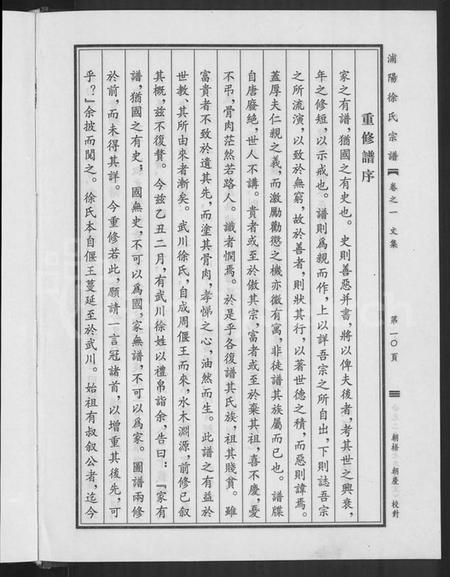 浦陽徐氏宗譜 卷之一 文集 第一〇頁 朝梧 朝慶 校對
重修譜序
家之有譜，猶國之有史也。史則善惡并書，將以俾夫後者，考其世之興衰，
年之修短，以示戒也。譜則為親而作，上以詳吾宗之所自出，下則誌吾宗
之所流演，以致於無窮，故於善者，則狀其行，以著世德之積，而惡則諱焉。
蓋厚夫仁親之義，而激勵勸懲之機亦徽有寓，非徒譜其族屬而已也。譜牒
自唐廢絶，世人不講。貴者或至於傲其宗，富者或至於棄其祖，喜不慶，憂
不弔，骨肉茫然若路人。識者憫焉。於是乎各復譜其氏族，祖其賤貧。雖
富貴者不致於遺其先，而塗其骨肉，孝悌之心，油然而生。此譜之有益於
世教、其所由來者漸矣。武川徐氏，自成周偃王而來，水木淵源，前修已叙
其概，茲不復贅。今茲乙丑二月，有武川徐姓以禮帛詣余，告曰：『家有
譜，猶國之有史；國無史，不可以為國，家無譜，不可以為家。圖譜兩修
於前，而未得其詳。今重修若此，願請一言冠諸首，以增重其後先，可
乎？』余披而閱之。徐氏本自偃王蔓延至於武川。始祖有叔叙公者，迄今